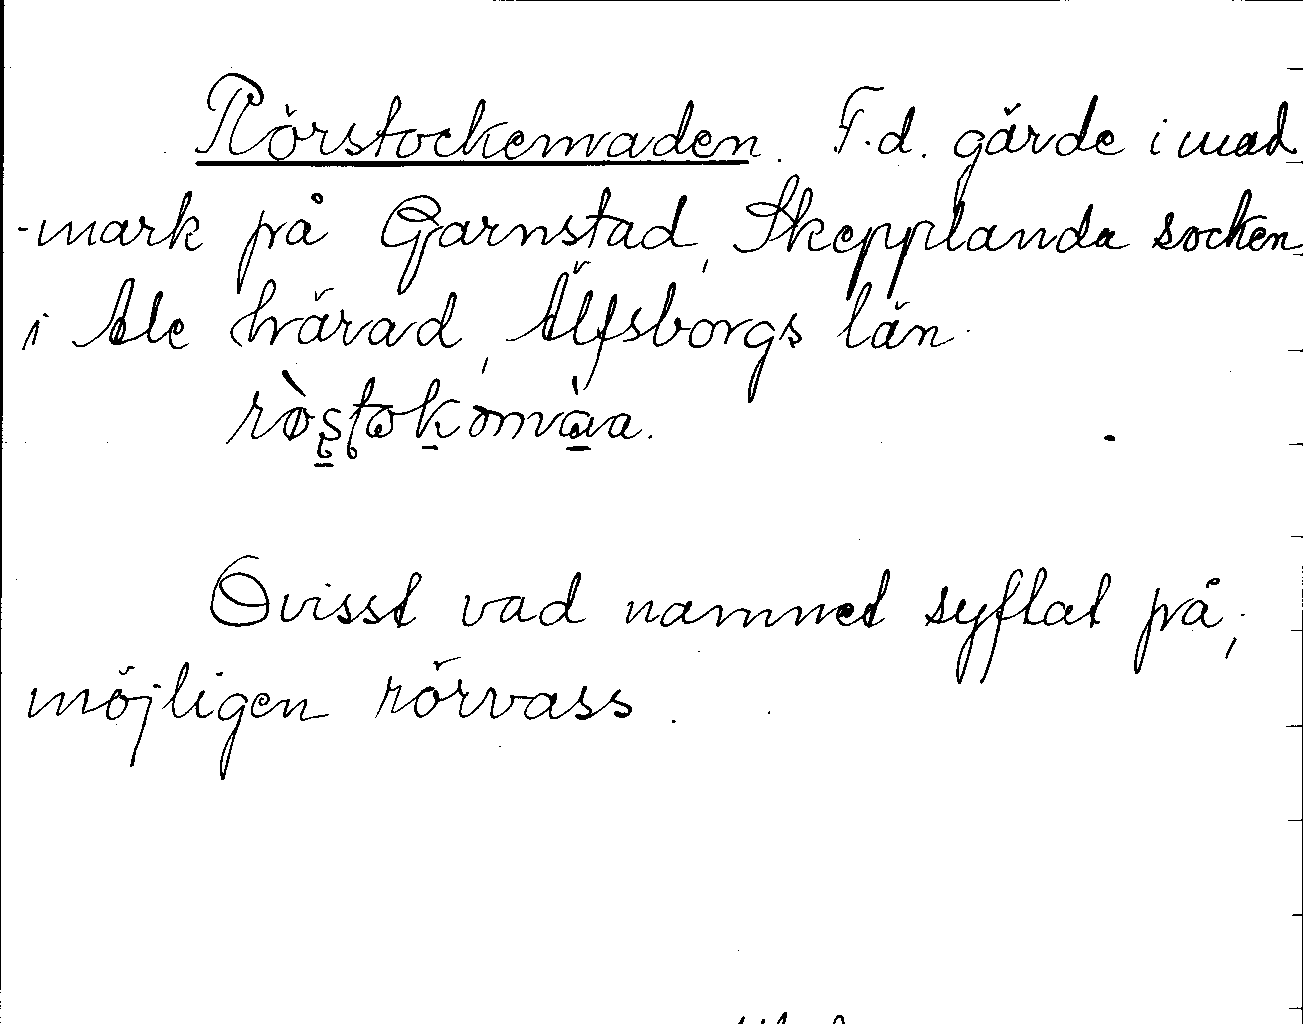 Rörstockemaden. F.d. gärde i mad
-mark på Garnstad, Skepplanda socken
i Ale härad, Älfsborgs län.
Ovisst vad namnet syftat på,
möjligen rörvass.